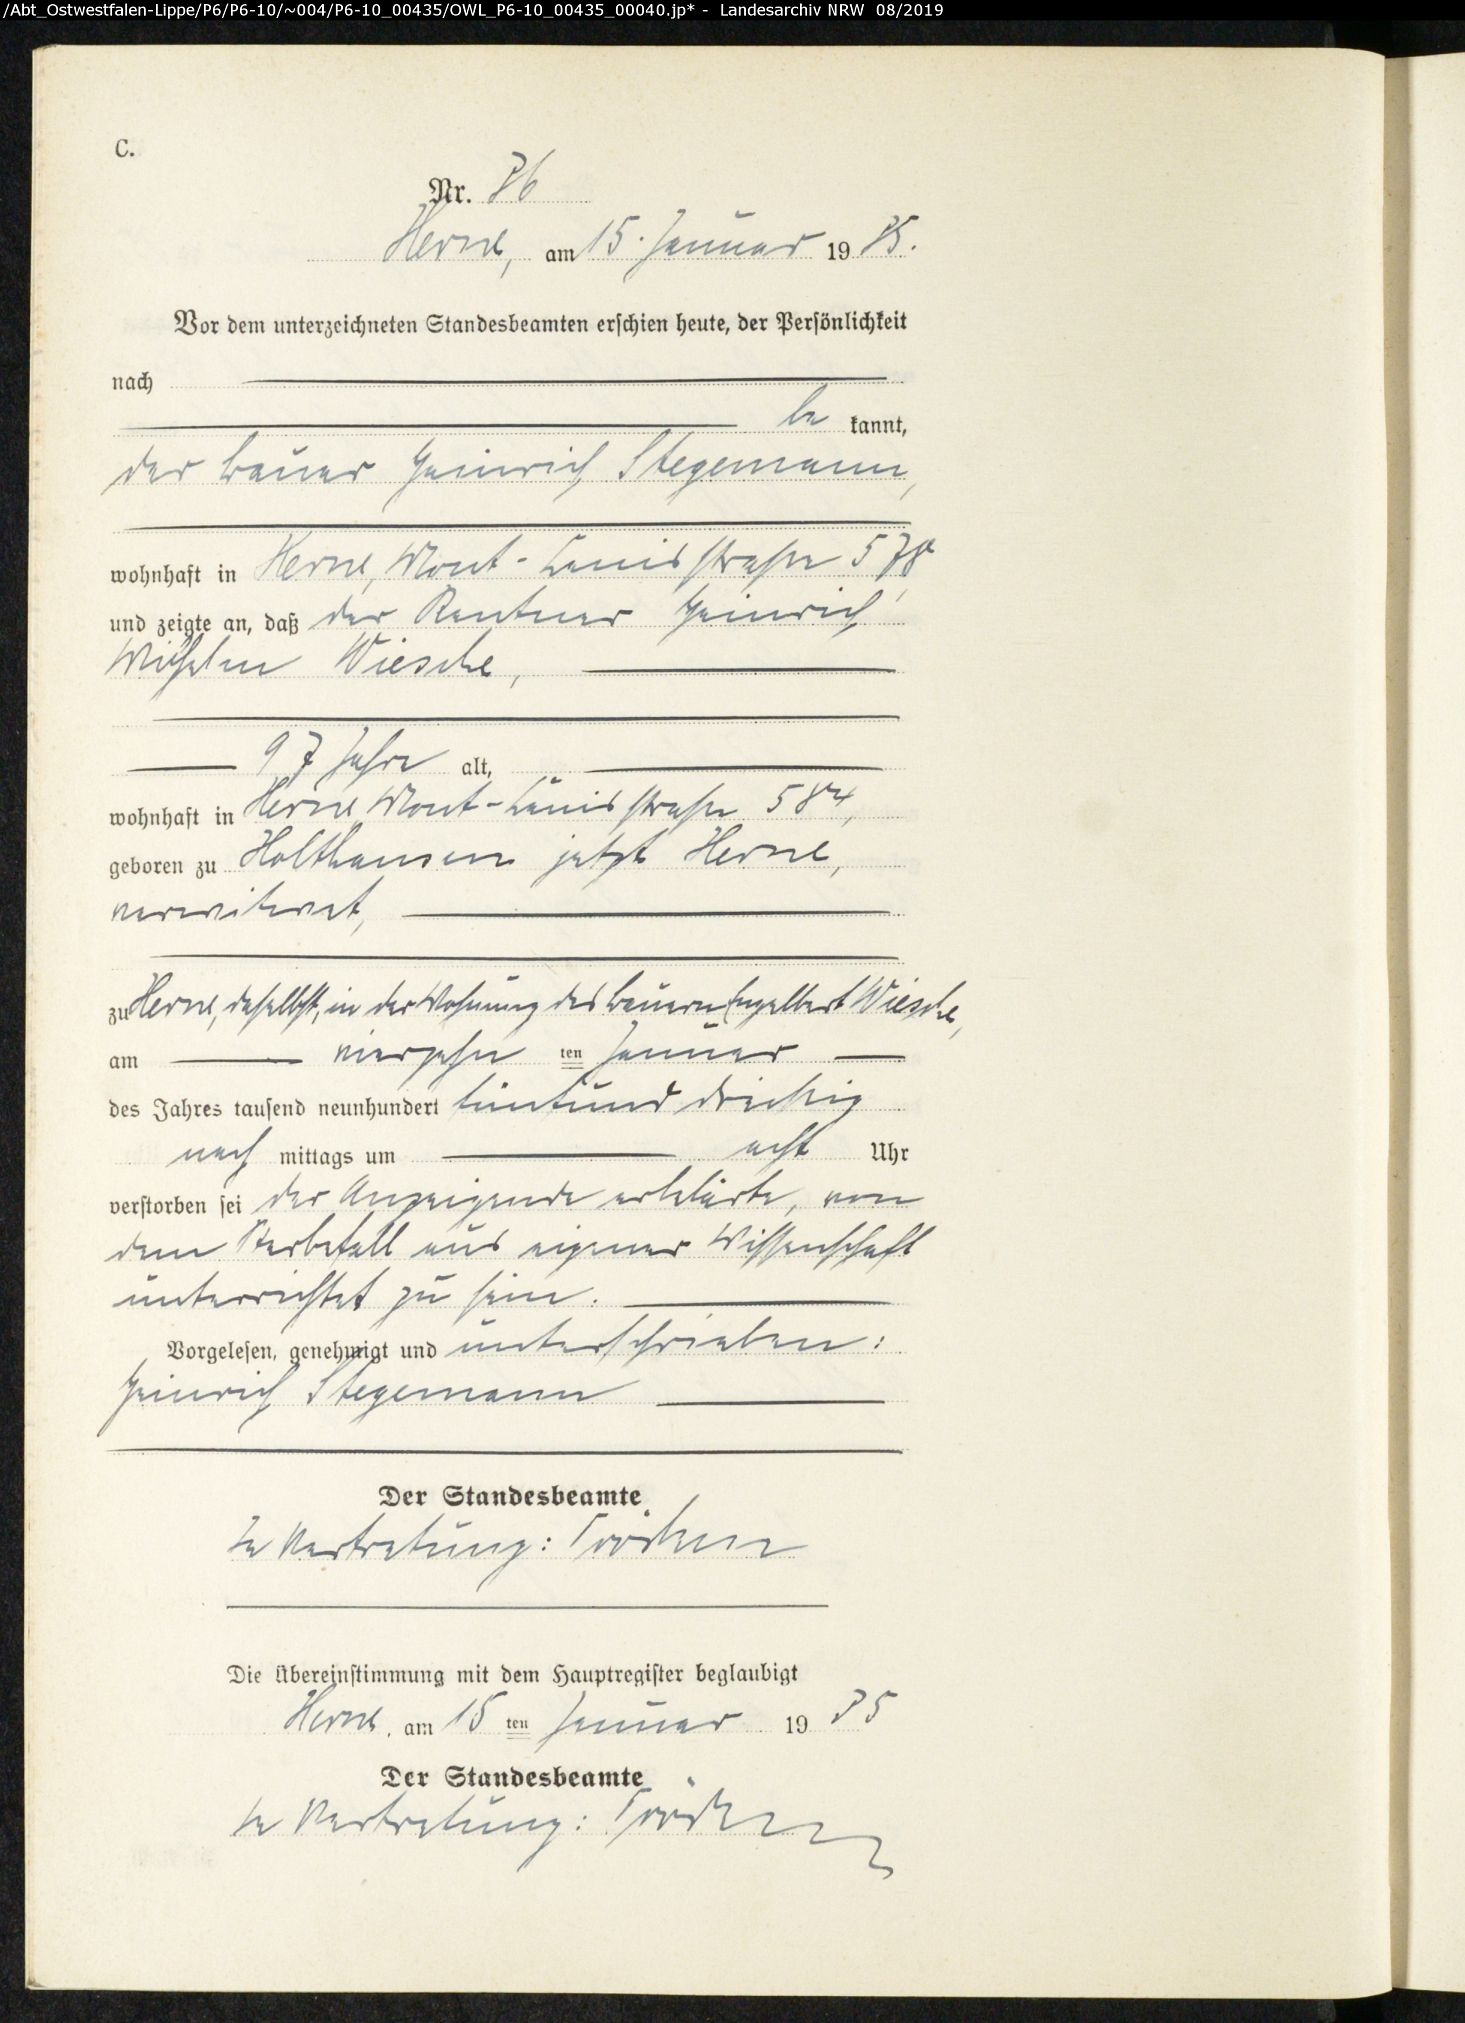 /Abt_Ostwestfalen-Lippe/P6/P6-10/~004/P6-10_00435/OWL_P6-10_00435_00040.jp* - Landesarchiv NRW 08/2019
C.
Nr. 36
Herne, am 15. Januar 19 35.
Vor dem unterzeichneten Standesbeamten erschien heute, der Persönlichkeit
nach
be kannt,
der Bauer Heinrich Stegemann,
wohnhaft in Herne, Mont-Cenisstraße 578,
und zeigte an, daß der Rentner Heinrich
Wilhelm Wiesche,
97 Jahre alt,
wohnhaft in Herne Mont-Cenisstraße 584,
geboren zu Holthausen jetzt Herne,
verwitwet,
zu Herne, daselbst, in der Wohnung des Bauern Engelbert Wiesche,
am vierzehn ten Januar
des Jahres tausend neunhundert fünfund dreißig
nach mittags um acht Uhr
verstorben sei der Anzeigende erklärte, von
dem Sterbefall aus eigener Wissenschaft
unterrichtet zu sein.
Vorgelesen, genehmigt und unterschrieben:
Heinrich Stegemann
Der Standesbeamte
In Vertretung:
Die Übereinstimmung mit dem Hauptregister beglaubigt
Herne, am 15 ten Januar 19 35
Der Standesbeamte
In Vertretung: